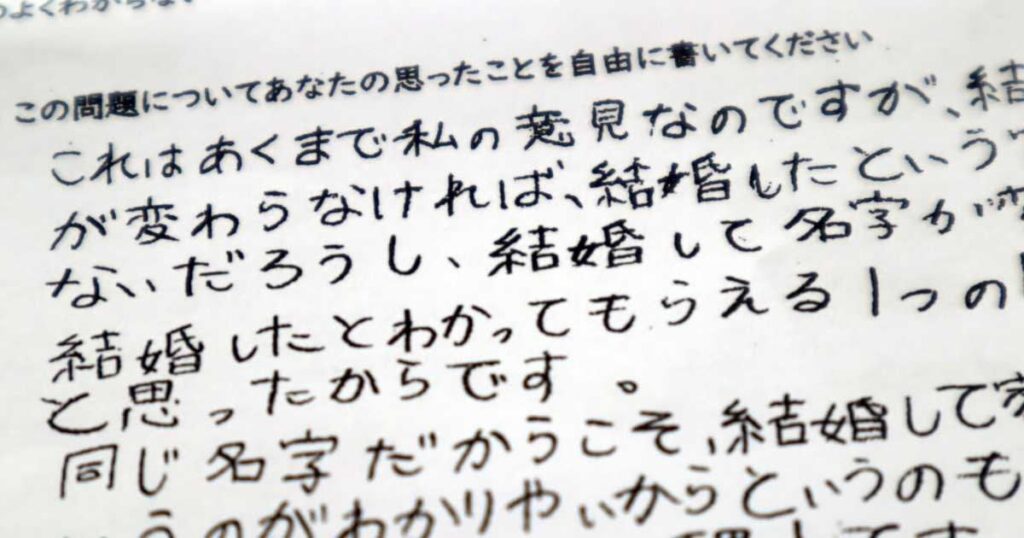 よくわからない
この問題についてあなたの思ったことを自由に書いてください
これはあくまで私の意見なのですが、結
が変わらなければ、結婚したという
ないだろうし、結婚して名字が変
結婚したとわかってもらえる1つの
と思ったからです。
同じ名字だからこそ、結婚して家
うのがわかりやいからというのも